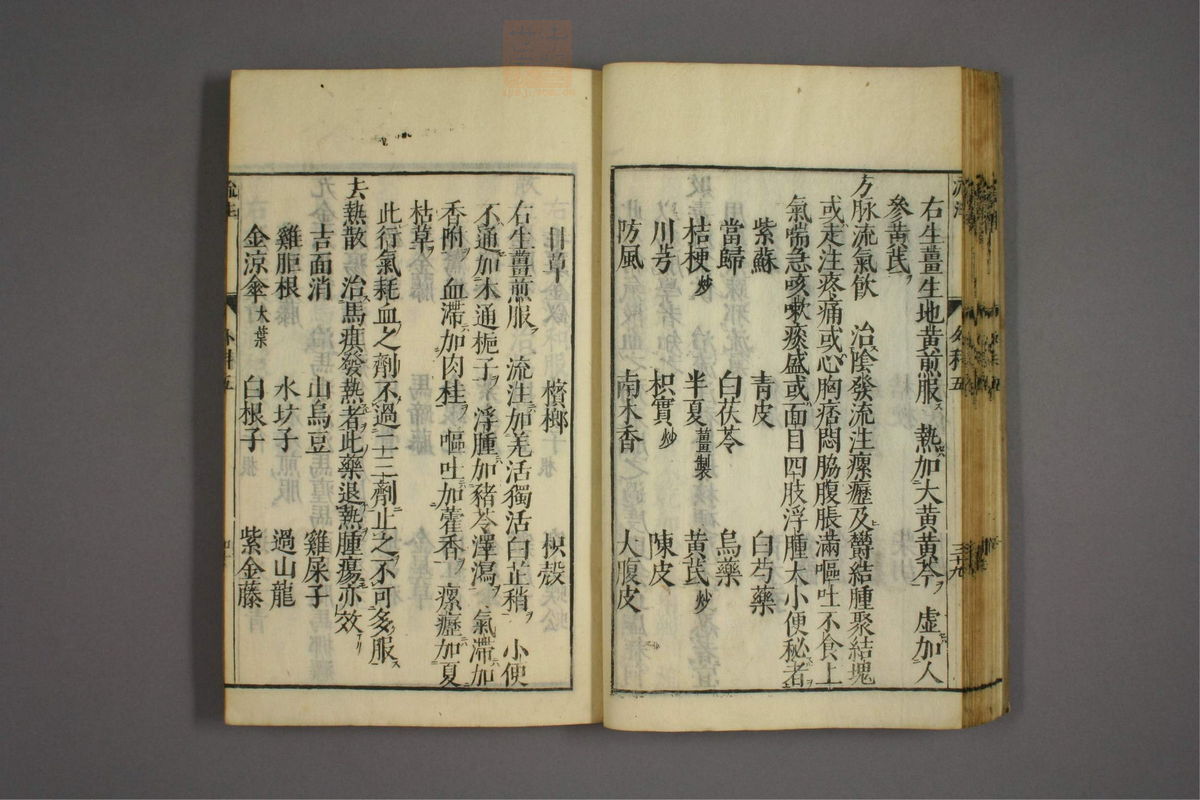 右生薑生地黃煎服 熱加大黃黃芩 虛加人
參黃芪
方脉流氣飲 治陰發流注瘰癧及欝結腫聚結塊
或走注疼痛或心胸痞悶脇腹脹滿嘔吐不食上
氣喘急咳嗽痰盛或面目四肢浮腫大小便秘者
紫蘇 青皮 白芍藥
當歸 白茯苓 烏藥
桔梗炒 半夏薑製 黃芪炒
川芎 枳實炒 陳皮
防風 南木香 大腹皮
甘草 檳榔 枳殼
右生薑煎服 流注加羌活獨活白芷稍 小便
不通加木通梔子 浮腫加豬苓澤瀉 氣滯加
香附 血滯加肉桂 嘔吐加藿香 瘰癧加夏
枯草
此行氣耗血之劑不過二三劑止之不可多服
去熱散 治馬瘨發熱者此藥退熱腫瘍亦效
吉面消 山烏豆 雞屎子
雞胵根 水坎子 過山龍
金涼傘大葉 白根子 紫金藤
外科五